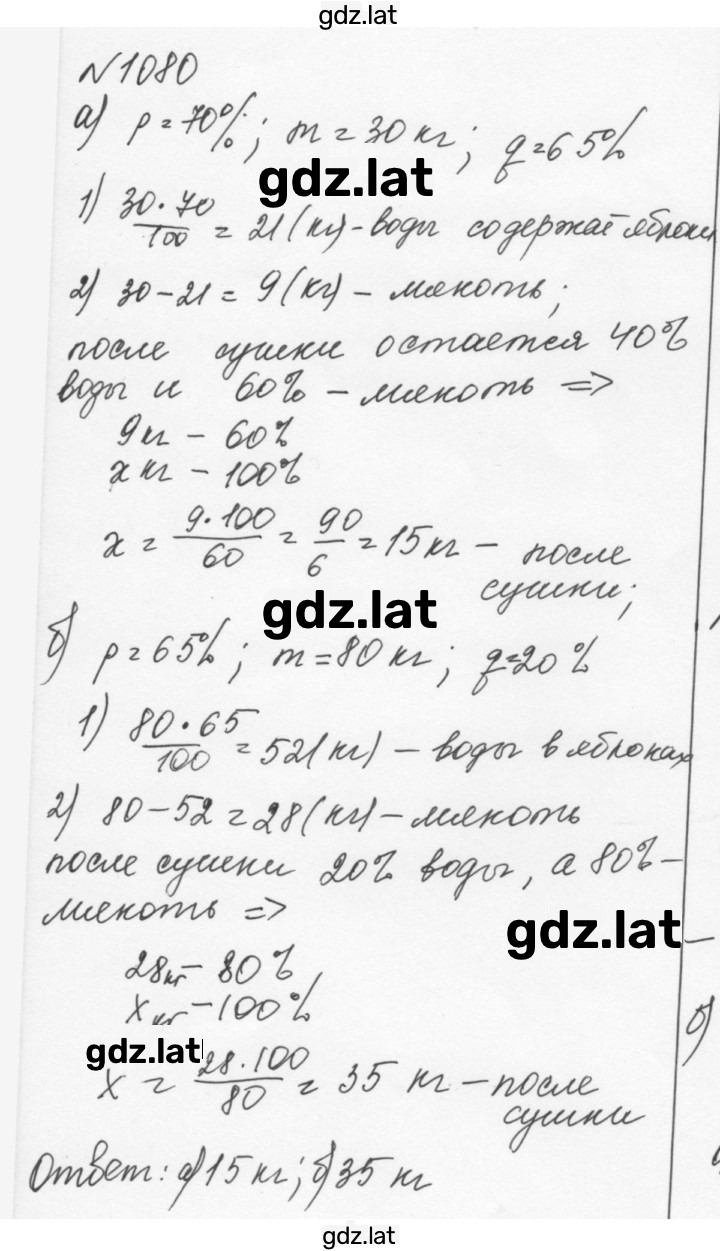 gdz.lat
№1080
а) p=70%; m=30 кг; q=65%
gdz.lat
1) 30·70/100 = 21(кг)-воды содержат яблоки
2) 30-21=9(кг)-мякоть;
после сушки остается 40%
воды и 60% - мякоть =>
9кг - 60%
x кг - 100%
x = 9·100/60 = 90/6 = 15 кг - после
сушки;
gdz.lat
б) p=65%; m=80 кг; q=20%
1) 80·65/100 = 52(кг) - воды в яблоках
2) 80-52=28(кг)-мякоть
после сушки 20% воды, а 80%-
мякоть =>
gdz.lat
28кг - 80%
x кг - 100%
gdz.lat
x = 28·100/80 = 35 кг - после
сушки
Ответ: а)15 кг; б)35 кг
б)
gdz.lat